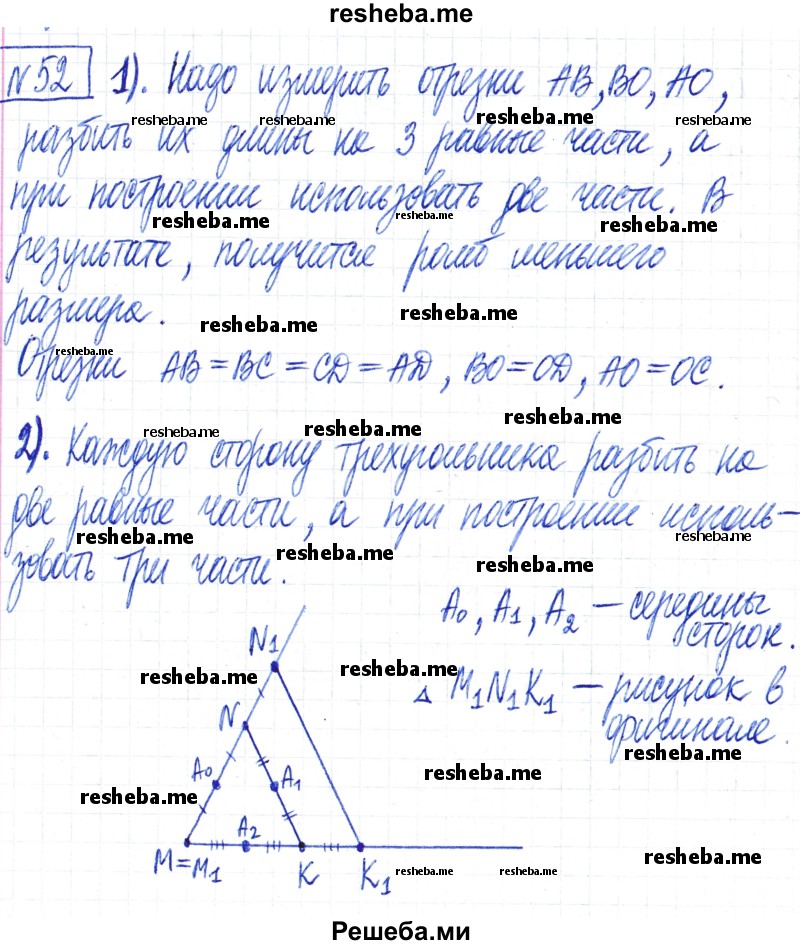 resheba.me
№52 1). Надо измерить отрезки AB, BO, AO,
resheba.me resheba.me resheba.me resheba.me
разбить их длины на 3 равные части, а
при построении использовать две части. В
resheba.me resheba.me resheba.me
результате, получится ромб меньшего
размера.
resheba.me resheba.me
resheba.me
Отрезки AB = BC = CD = AD, BO = OD, AO = OC.
resheba.me resheba.me resheba.me
2). Каждую сторону треугольника разбить на
две равные части, а при построении исполь-
resheba.me resheba.me resheba.me
зовать три части.
resheba.me
A0, A1, A2 — середины
сторон.
N1
resheba.me resheba.me
△ M1N1K1 — рисунок в
оригинале.
N
resheba.me
A0 A1
resheba.me
resheba.me
A2
M=M1 K K1
resheba.me resheba.me resheba.me
Решеба.ми